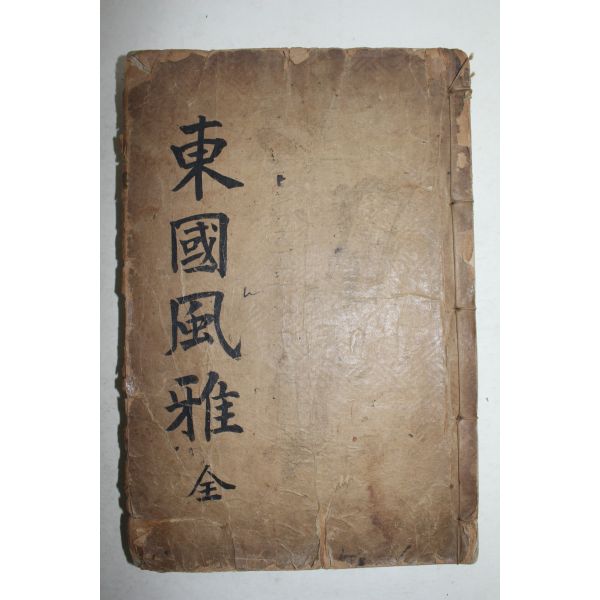 東國風雅 全